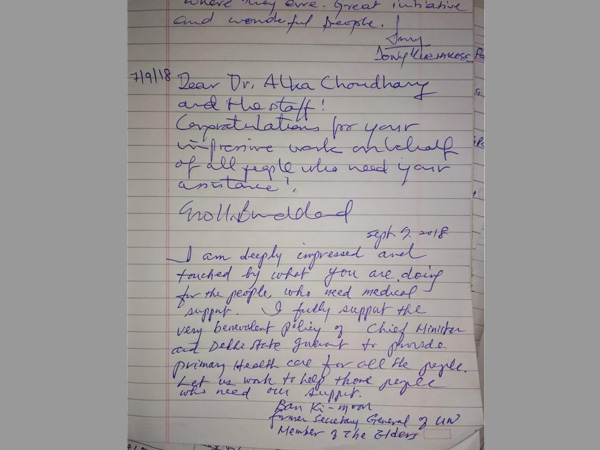 where they are. Great initiative
and wonderful people.
7/9/18 Dear Dr. Alka Choudhary
and the staff!
Congratulations for your
impressive work on behalf
of all people who need your
assistance!
Gro H. Brundtland
Sept. 7. 2018
I am deeply impressed and
touched by what you are doing
for the people, who need medical
support. I fully support the
very benevolent policy of Chief Minister
and Delhi State to provide
primary Health care for all the people.
Let us work to help those people
who need our support.
Ban Ki-moon
former Secretary General of UN
Member of The Elders